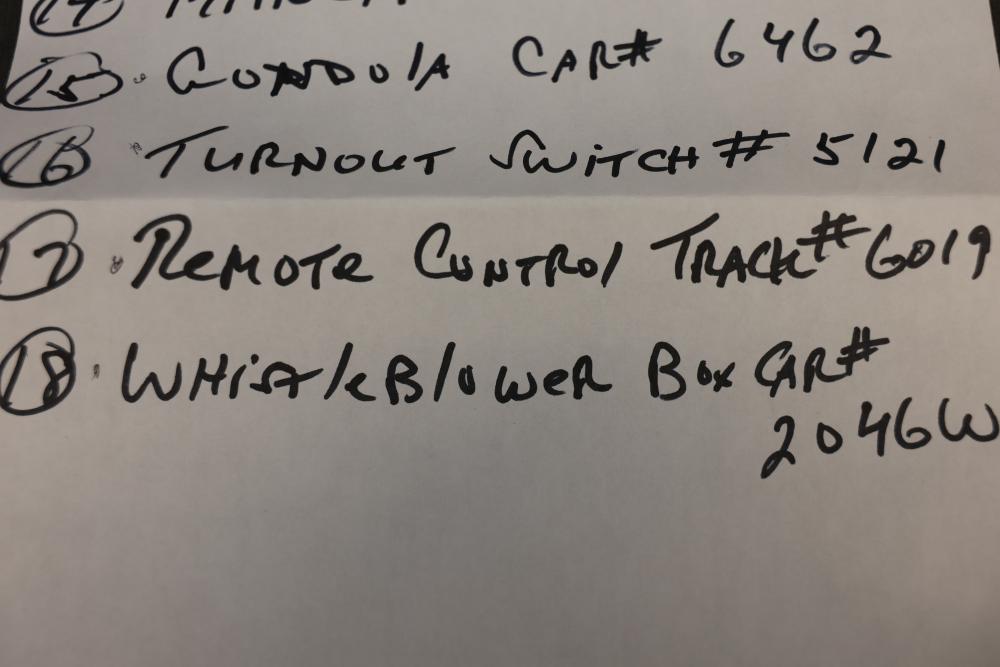 15 GONDOLA CAR# 6462
16 TURNOUT SWITCH # 5121
17 REMOTE CONTROL TRACK# 6019
18 WHISTLEBLOWER BOX CAR#
2046W